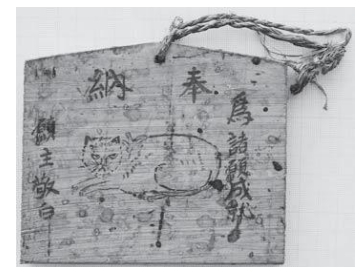 奉納
爲諸願成就
願主敬白